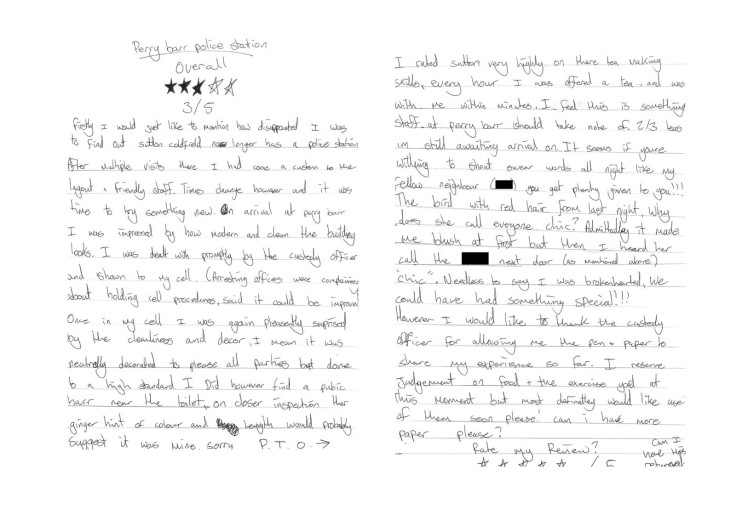 Perry barr police station
Overall
★★★☆☆
3/5
Firstly I would just like to mention how disappointed I was
to find out sutton coldfield no longer has a police station
After multiple visits there I had come a custom to the
layout + friendly staff. Times change however and it was
time to try something new. On arrival at perry barr
I was impressed by how modern and clean the building
looks. I was dealt with promptly by the custody officer
and shown to my cell. (Arresting officers were complaining
about holding cell procedures, said it could be improved
Once in my cell I was again pleasently suprised
by the cleanliness and decor, I mean it was
neutrally decorated to please all parties but done
to a high standard I Did however find a pubic
hair near the toilet, on closer inspection the
ginger hint of colour and length would probably
suggest it was mine. sorry P.T.O →
I rated sutton very highly on there tea making
skills, every hour I was offered a tea and was
with me within minutes. I feel this is something
staff at perry barr should take note of 2/3 teas
im still awaiting arrival on. It seems if youre
willying to shout swear words all night like my
fellow neighbour you get plenty given to you!!!
The bird with red hair from last night, why
does she call everyone chic? Admittadley it made
me blush at first but then I heard her
call the next door (as mentioned above)
"chic". Needless to say I was brokenhearted, We
could have had something special!!!
However I would like to thank the custody
officer for allowing me the pen + paper to
share my experience so far. I reserve
Judgement on food + the exercise yard at
this moment but most definatley would like use
of them soon please! can i have more
paper please?
Rate my Review?
☆ ☆ ☆ ☆ ☆ /5
Can I
have this